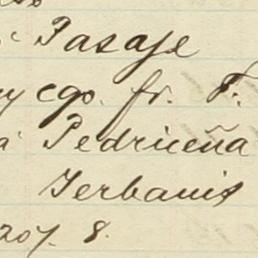 Pasaje
y cgo. fr. F.
á Pedrueña
Yerbanis
20%. 8.